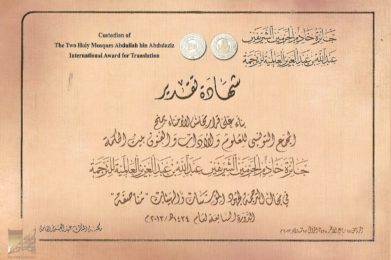 Custodian of
The Two Holy Mosques Abdullah bin Abdulaziz
International Award for Translation
جائزة خادم الحرمين الشريفين
عبدالله بن عبدالعزيز العالمية للترجمة
شهادة تقدير
بناء على قرار مجلس الأمناء بمنح
المجمع التونسي للعلوم والآداب والفنون بيت الحكمة
جائزة خادم الحرمين الشريفين عبدالله بن عبدالعزيز العالمية للترجمة
في مجال الترجمة لجهود المؤسسات والهيئات "مناصفة"
الدورة السابعة لعام ١٤٣٤هـ/٢٠١٣م